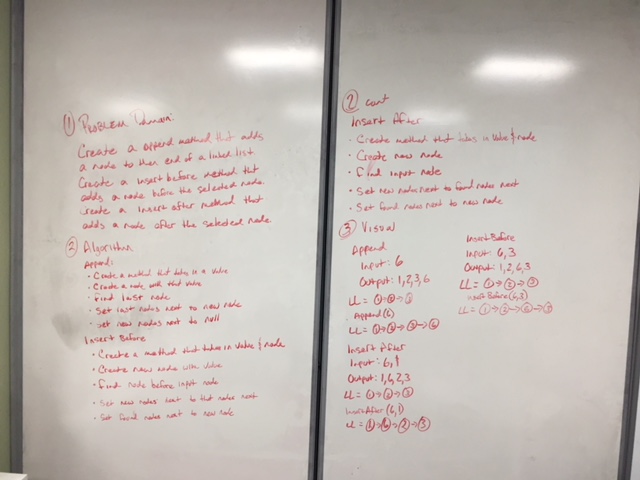 ① Problem Domain:
Create a append method that adds
a node to then end of a linked list
Create a insert before method that
adds a node before the selected node.
create a insert after method that
adds a node after the selected node
② Algorithm
Append:
• Create a method that takes in a value
• Create a node with that value
• find last node
• Set last nodes next to new node
• set new nodes next to null
Insert Before
• Create a method that takes in value & node
• Create new node with value
• find node before input node
• Set new nodes next to that nodes next
• Set found nodes next to new node
② cont
Insert After
• Create method that takes in value & node
• Create new node
• find input node
• Set new nodes next to found nodes next
• Set found nodes next to new node
③ Visual
Append
Input: 6
Output: 1,2,3,6
LL = ①→②→③
• Append(6)
LL = ①→②→③→⑥
Insert After
Input: 6,1
Output: 1,6,2,3
LL = ①→②→③
InsertAfter(6,1)
LL = ①→⑥→②→③
Insert Before
Input: 6,3
Output: 1,2,6,3
LL = ①→②→③
Insert Before(6,3)
LL = ①→②→⑥→③